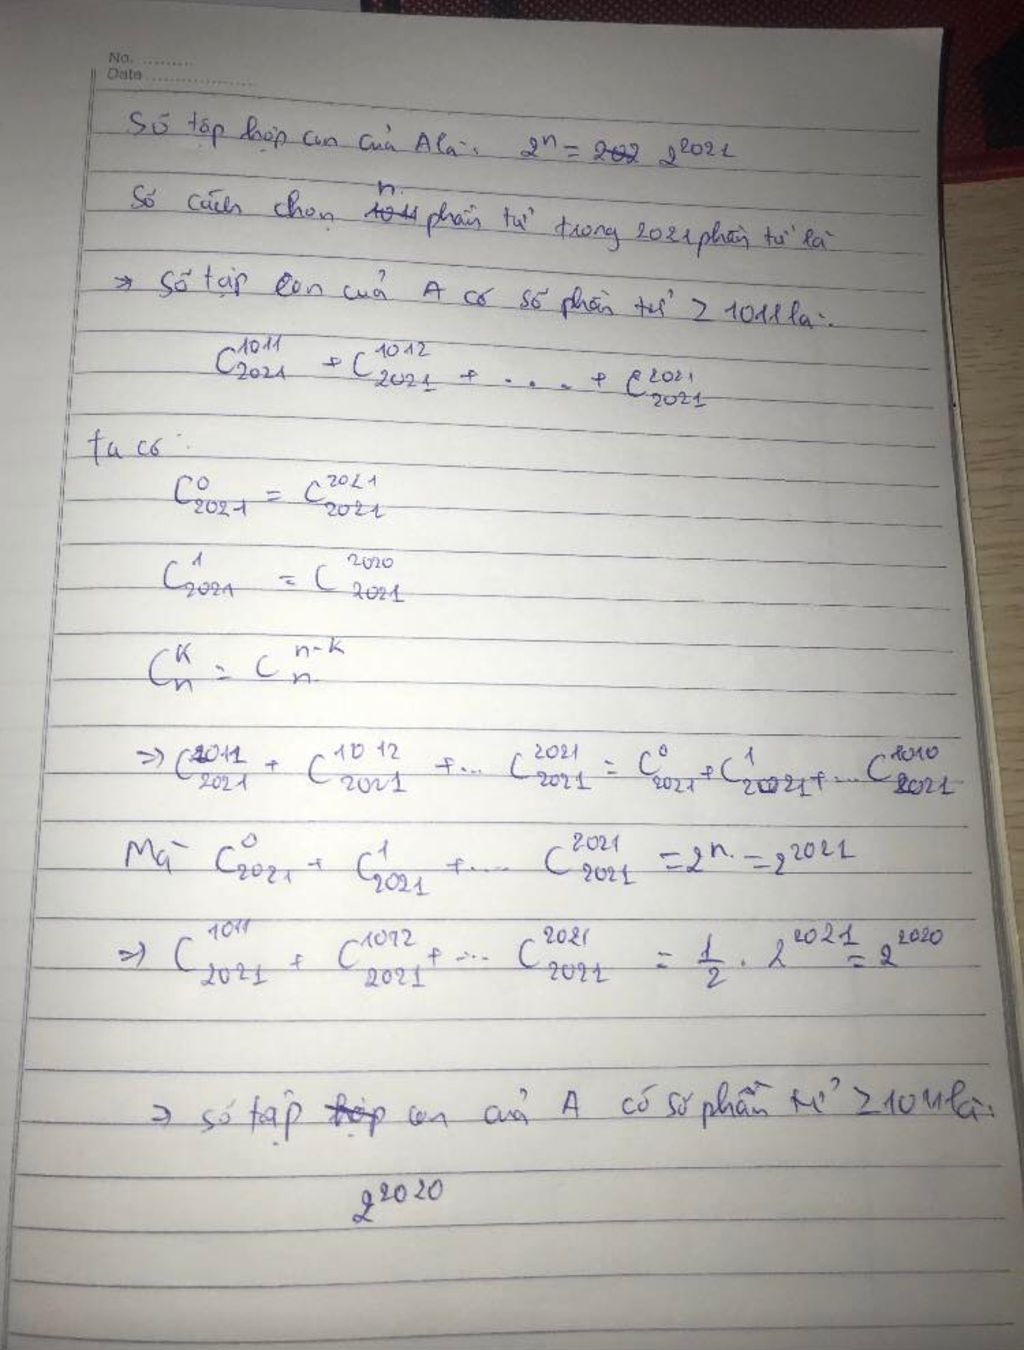 No. ..........
Date ....................
Số tập hợp con của A là: 2^n = 202 2^2021
n
Số cách chọn 1011 phần tử trong 2021 phần tử là
=> Số tập con của A có số phần tử ≥ 1011 là:
C_2021^1011 + C_2021^1012 + .... + C_2021^2021
Ta có:
C_2021^0 = C_2021^2021
C_2021^1 = C_2021^2020
C_n^k = C_n^{n-k}
=> C_2021^1011 + C_2021^1012 + ... C_2021^2021 = C_2021^0 + C_2021^1 + ... C_2021^1010
Mà C_2021^0 + C_2021^1 + .... C_2021^2021 = 2^n = 2^2021
=> C_2021^1011 + C_2021^1012 + ... C_2021^2021 = 1/2 . 2^2021 = 2^2020
=> số tập hợp con của A có số phần tử ≥ 1011 là:
2^2020